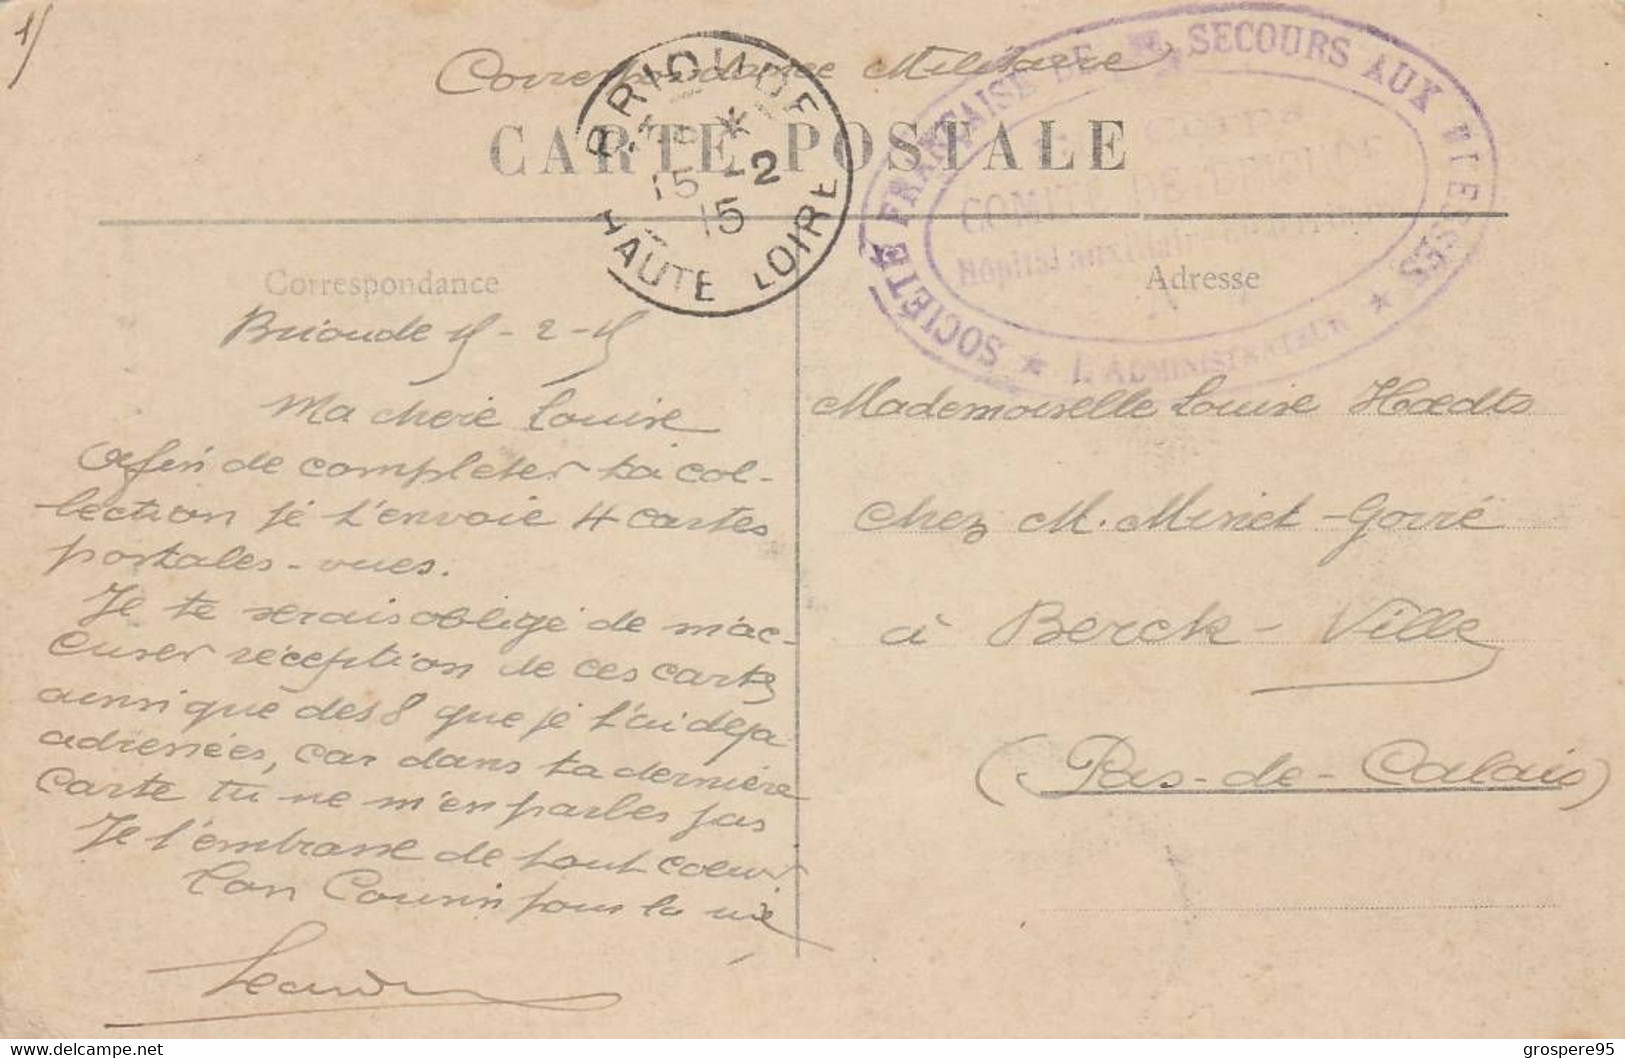 1)
Correspondance Militaire
CARTE POSTALE
BRIOUDE
15 -2
15
HAUTE LOIRE
SOCIÉTÉ FRANÇAISE DE SECOURS AUX BLESSÉS
COMITÉ DE BRIOUDE
Hôpital auxiliaire
L'ADMINISTRATEUR
Correspondance
Adresse
Brioude 15-2-15
Ma chère Louise
Afin de completer ta col-
lection je t'envoie 4 cartes
postales-vues.
Je te serais obligé de m'ac-
cuser réception de ces cartes
ainsi que des 8 que je t'ai déja
adressées, car dans ta dernière
carte tu ne m'en parles pas
Je t'embrasse de tout coeur
Ton Cousin pour la vie
Mademoiselle Louise Hœdts
chez M. Miniet-Gorré
à Berck-Ville
(Pas-de-Calais)
www.delcampe.net
grospere95